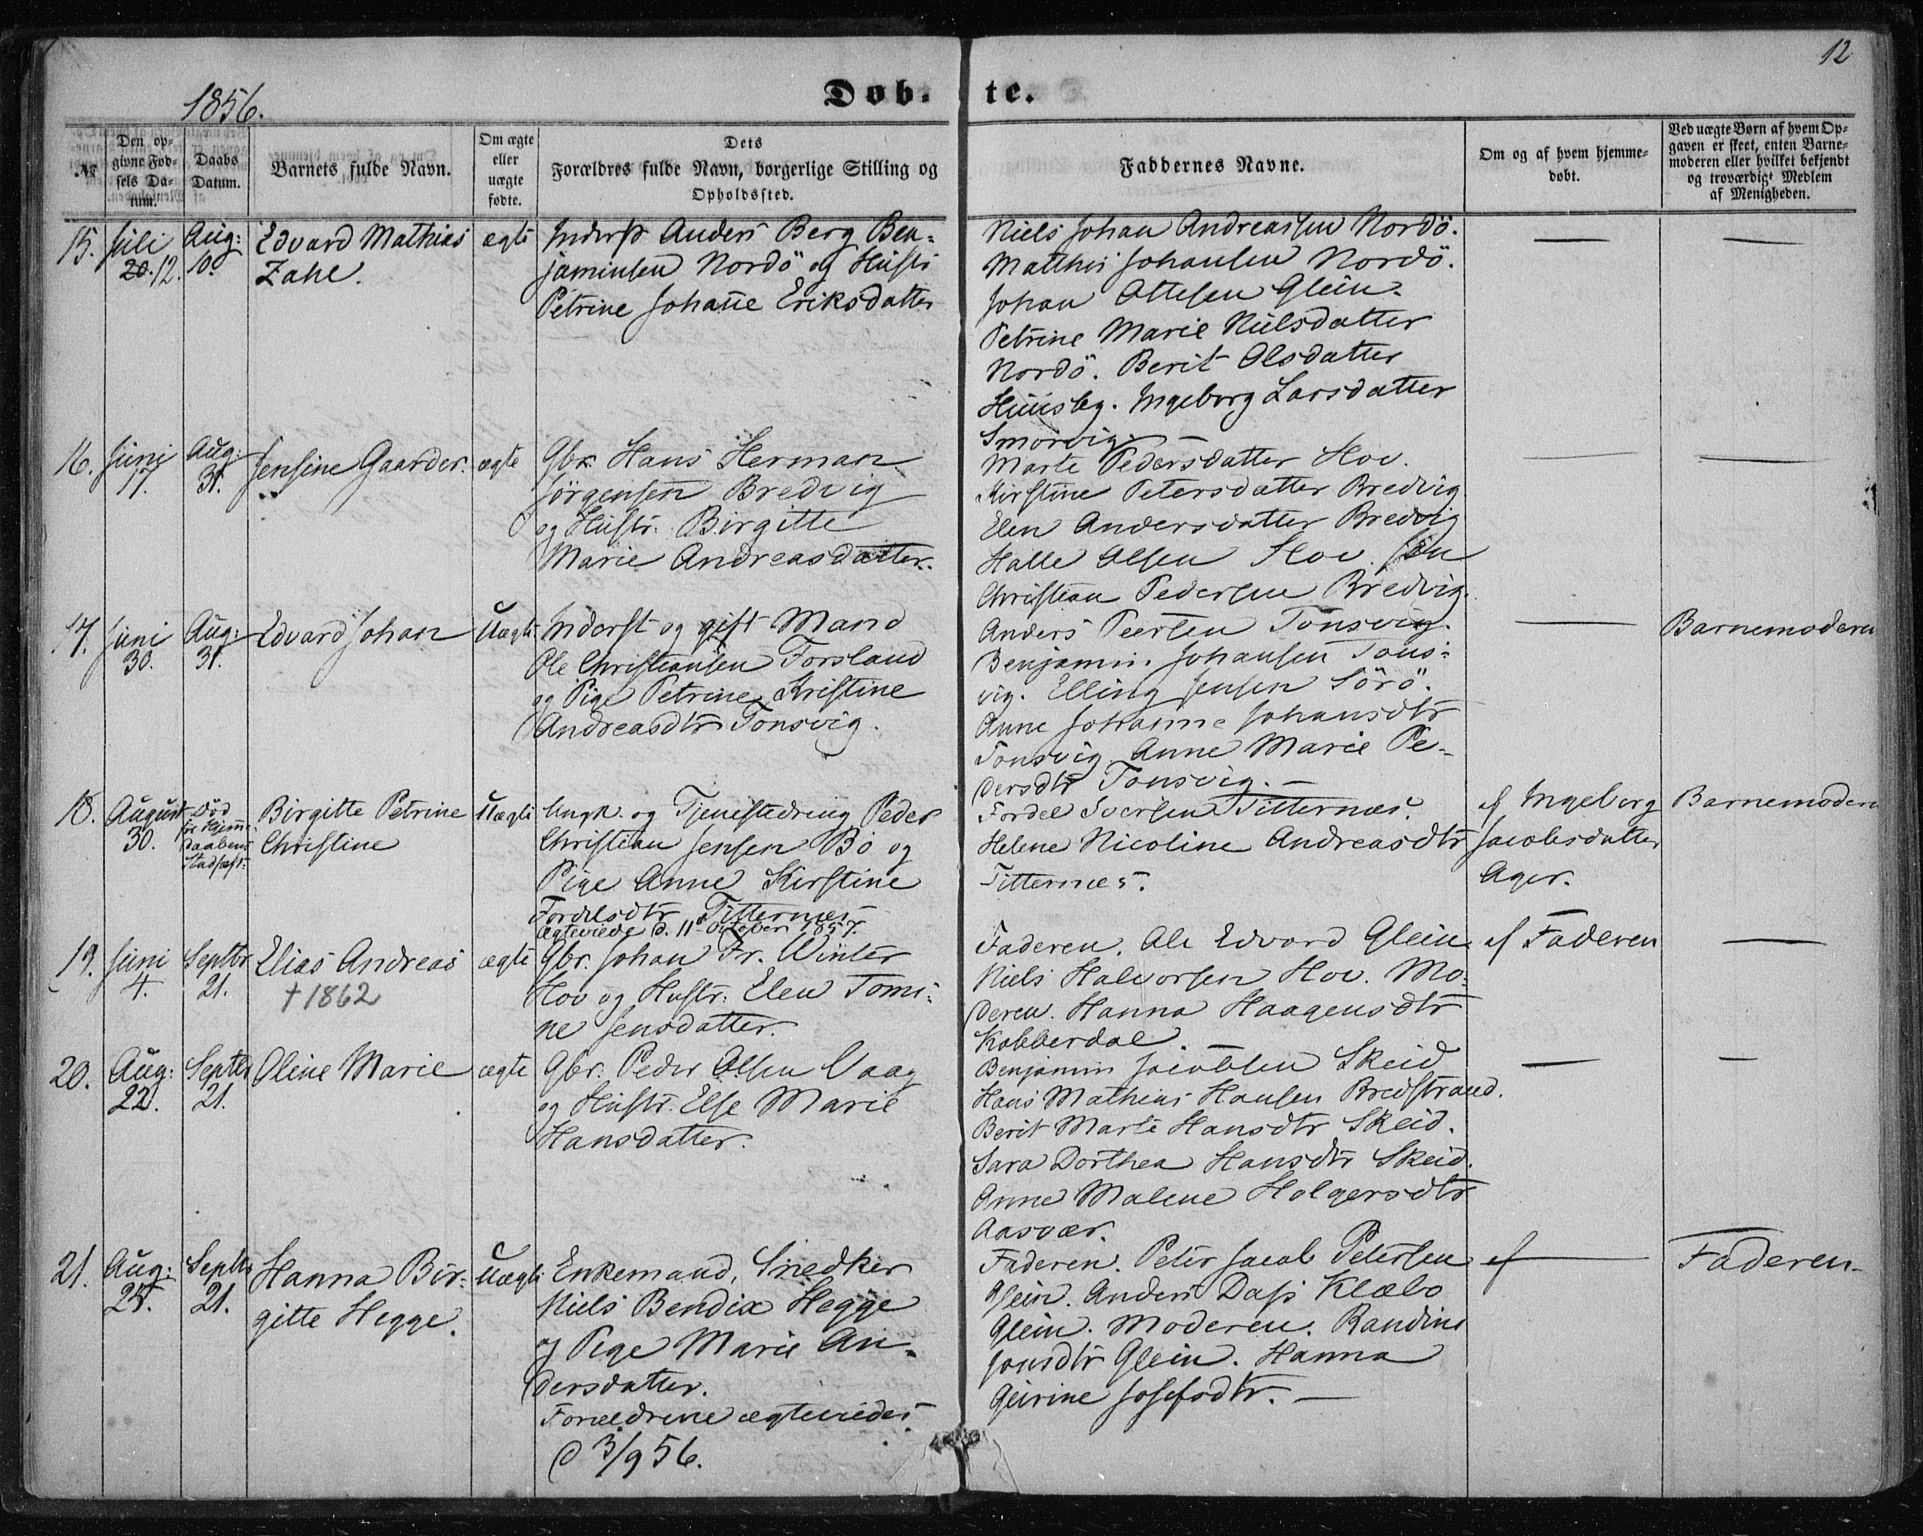 12
1856.
Døb-te.
№
Den op-
givne Fød-
sels Da-
tum.
Daabs
Datum.
Barnets fulde Navn.
Om ægte
eller
uægte
fødte.
Dets
Forældres fulde Navn, borgerlige Stilling og
Opholdssted.
Faddernes Navne.
Om og af hvem hjemme-
døbt.
Ved uægte Børn af hvem Op-
gaven er skeet, enten Barne-
moderen eller hvilket bekjendt
og troværdigt Medlem
af Menigheden.
15.
Juli
20. 12.
Aug:
10.
Edvard Mathias
Zahl.
ægte
Inderst Anders Berg Ben-
jaminsen Nordö og Hustr
Petrine Johanne Eriksdatter
Niels Johan Andreassen Nordö.
Matthis Johansen Nordö.
Johan Ottesen Glein.
Petrine Marie Nielsdatter
Nordö. Berit Olsdatter
Huusby. Ingeborg Larsdatter
Smörvig.
16.
Juni
17.
Aug:
31.
Jensine Gaarder.
ægte
Gbr. Hans Herman
Jørgensen Bredvig
og Hustr. Birgitte
Marie Andreasdatter.
Marte Pedersdatter Hov.
Kirstine Petersdatter Bredvig
Elen Andersdatter Bredvig
Halle Olsen Hov. Jen
Christian Pedersen Bredvig.
17.
Juni
30.
Aug:
31.
Edvard Johan
Uægte
Inderst og gift Mand
Ole Christiansen Forsland
og Pige Petrine Kristine
Andreasdtr Tonsvig.
Anders Peersen Tonsvig.
Benjamin Johansen Tons-
vig. Elling Jensen Sörö.
Anne Johanne Johansdtr
Tonsvig Anne Marie Pe-
dersdtr Tonsvig.
Barnemoderen
18.
August
30.
Død
før Hjem-
daabens
Stadfæst.
Birgitte Petrine
Christine
Uægte
Ungk. og Tjenestedreng Peder
Christian Jensen Bö og
Pige Anne Kirstine
Fordelsdtr Titternes
ægteviede d. 11 October 1857.
Fordel Iversen Titternes.
Helene Nicoline Andreasdtr
Titternes.
af Ingeborg
Jacobsdatter
Ager.
Barnemoderen
19.
Juni
4.
Septbr
21.
Elias Andreas
† 1862
ægte
Gbr. Johan Fr. Winter
Hov og Hustr: Elen Tomi-
ne Jensdatter.
Faderen. Ole Edvard Glein
Niels Halvorsen Hov. Mo-
deren. Hanna Haagensdtr
Kobberdal.
af Faderen
20.
Aug:
22.
Septbr
21.
Oline Marie
ægte
Gbr. Peder Olsen Vaag
og Hustr. Else Marie
Hansdatter.
Benjamin Jacobsen Skeid
Hans Mathias Hansen Bredstrand.
Berit Marte Hansdtr Skeid.
Sara Dorthea Hansdtr Skeid.
Anne Malene Holgersdtr
Aasvær.
21.
Aug:
25.
Septbr
21.
Hanna Bir-
gitte Hegge.
Uægte
Enkemand, Snedker
Niels Bendix Hegge
og Pige Marie An-
dersdatter.
Forældrene ægteviedes
d 3/9 56.
Faderen. Peter Jacob Petersen
Glein. Anders Dass Klæbo
Glein. Moderen. Randine
Jonsdtr Glein. Hanna
Geirine Josefsdtr.
af
Faderen